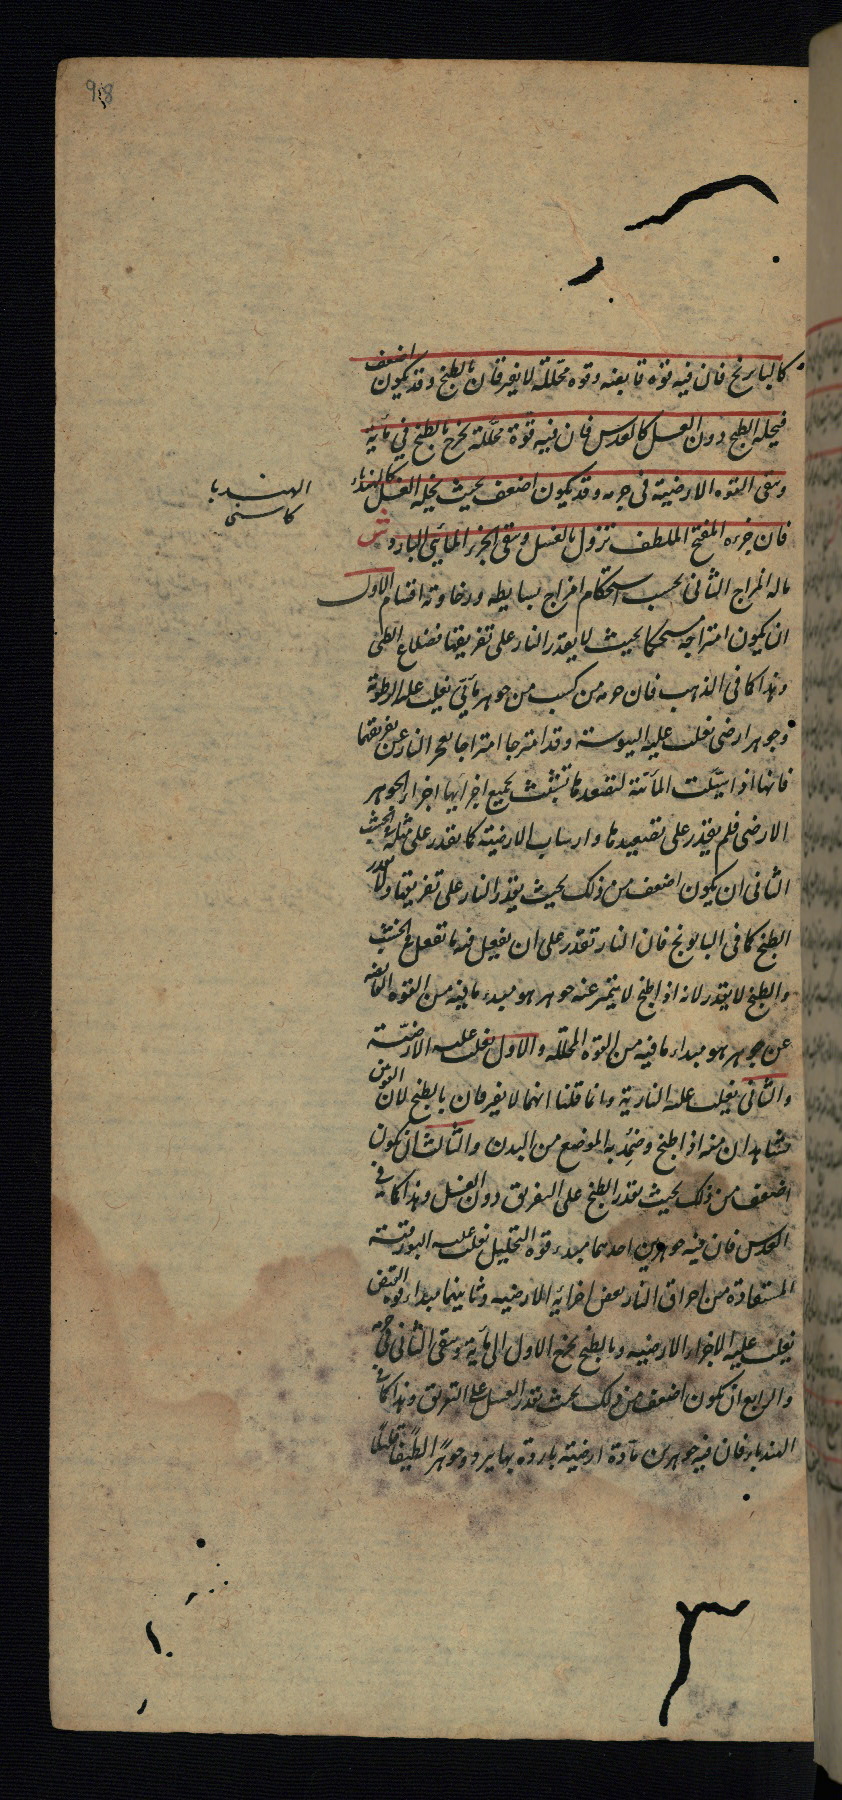 كالبابونج فان فيه قوة قابضه وقوه محللة لا يفرقان بالطبخ وقد يكون اضعف
فيحله الطبخ دون الغسل كالعدس فان فيه قوة محللة تخرج بالطبخ في مائية
وتبقى القوه الارضية فى جرمه وقد يكون اضعف بحيث يحله الغسل كالهندباء
فان جزءه المفتح الملطف تزول بالغسل ويبقى الجزء المائى البارد ش
ماله المزاج الثانى بحسب استحكام امزاج بسايطه ورخاوته اقسام الاول
ان يكون امتزاجه مستحكما بحيث لا يقدر النار على تفريقها فضلا عن الطبخ
وهذا كما فى الذهب فان جرمه مركب من جوهر مآئي يغلب عليه الرطوبة
وجوهر ارضى يغلب عليه اليبوسة وقد امتزجا امتزاجا يعجز النار عن تفريقهما
فانها اذا سيلت المآئية لتصعدها تشبث بجميع اجزائها اجزاء الجوهر
الارضى فلم يقدر على تصعيدها وارساب الارضية كما يقدر على مثله فى الخشب
الثانى ان يكون اضعف من ذلك بحيث يقدر النار على تفريقها ولا يقدر
الطبخ كما فى البابونج فان النار تقدر على ان يفعل فيه ما تفعل فى الخشب
والطبخ لا يقدر لانه اذا طبخ لا يتميز عنه جوهر هو مبدء ما فيه من القوه القابضه
عن جوهر هو مبداء ما فيه من القوه المحللة والاول يغلب عليه الارضية
والثانى يغلب عليه النارية وانما قلنا انهما لا يفرقان بالطبخ لان القوتين
نشاهدان منه اذا طبخ وضمد به الموضع من البدن والثالث ان يكون
اضعف من ذلك بحيث يقدر الطبخ على التفريق دون الغسل وهذا كما فى
العدس فان فيه جوهرين احدهما مبدء قوة التحليل يغلب عليه البورقية
المستفادة من احراق النار بعض اجزائه الارضيه وثانيهما مبداء قوة القبض
يغلب عليه الاجزاء الارضيه وبالطبخ يخرج الاول الى مائية ويبقى الثانى فى جرمه
والرابع ان يكون اضعف من ذلك بحيث يقدر الغسل على التفريق وهذا كما فى
الهندباء فان فيه جوهرين مآدة ارضية باردة بها يبرد وجوهرا لطيفا قليلا
الهندبا
كاسنى
98